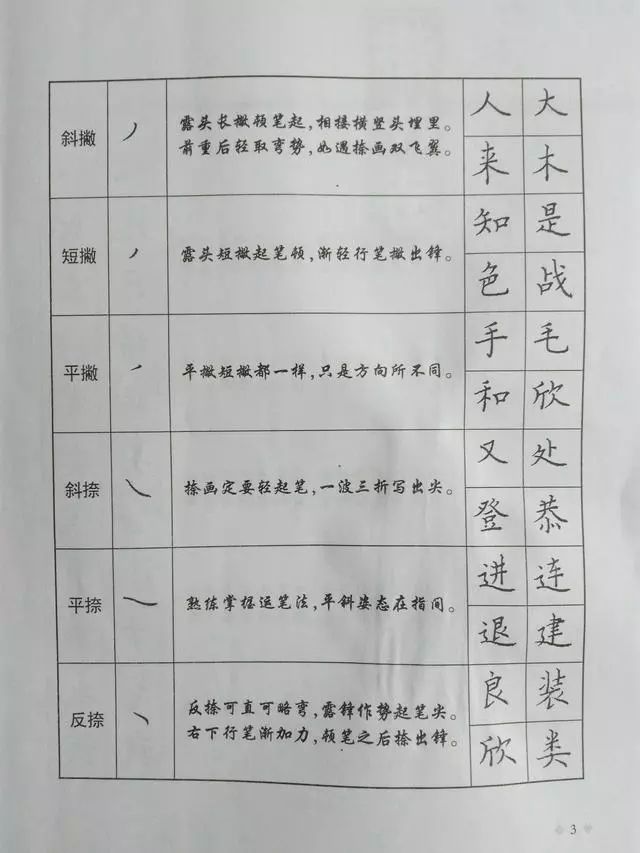 斜撇
露头长撇顿笔起，相接横竖头埋里。
前重后轻取弯势，如遇捺画双飞翼。
人 大
来 木
短撇
露头短撇起笔顿，渐轻行笔撇出锋。
知 是
色 战
平撇
平撇短撇都一样，只是方向所不同。
手 毛
和 欣
斜捺
捺画定要轻起笔，一波三折写出尖。
又 处
登 恭
平捺
熟练掌握运笔法，平斜姿态在指间。
进 连
退 建
反捺
反捺可直可略弯，露锋作势起笔尖。
右下行笔渐加力，顿笔之后捺出锋。
良 装
欣 类
3